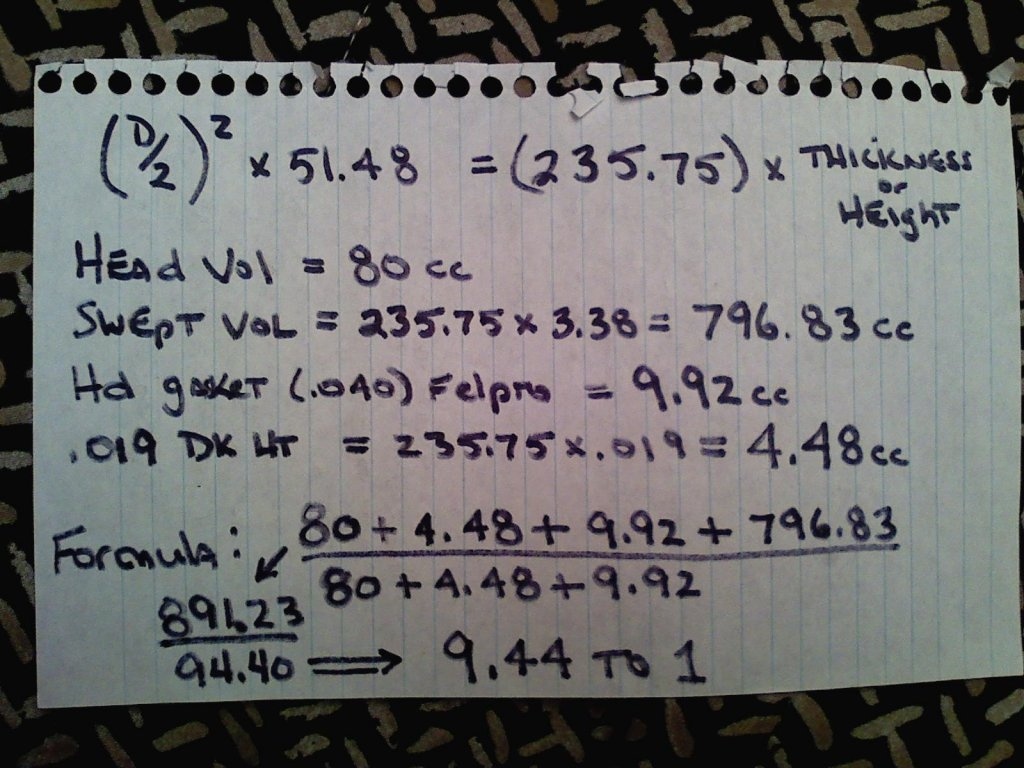 (D/2)² x 51.48 = (235.75) x THICKNESS
or
HEIGHT
HEAD VOl = 80 cc
SWEPT VOL = 235.75 x 3.38 = 796.83 cc
Hd gasket (.040) Felpro = 9.92 cc
.019 DK HT = 235.75 x .019 = 4.48 cc
Formula: 80 + 4.48 + 9.92 + 796.83
80 + 4.48 + 9.92
891.23
94.40 ⟹ 9.44 TO 1